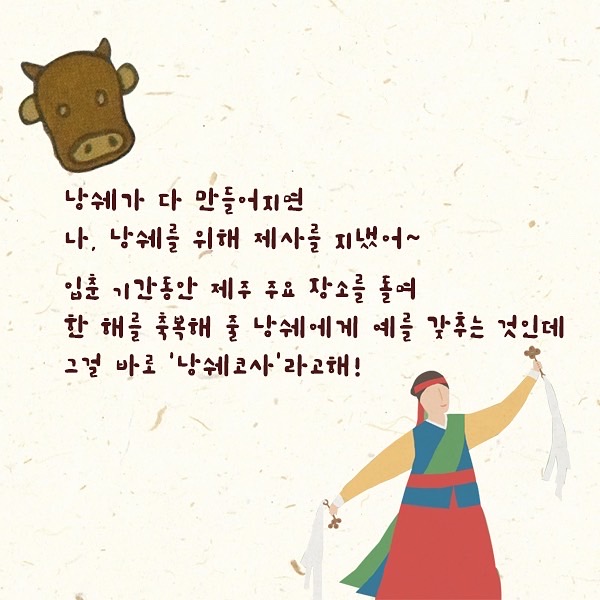 낭쉐가 다 만들어지면
나, 낭쉐를 위해 제사를 지냈어~
입춘 기간동안 제주 주요 장소를 돌며
한 해를 축복해 줄 낭쉐에게 예를 갖추는 것인데
그걸 바로 '낭쉐코사'라고해!